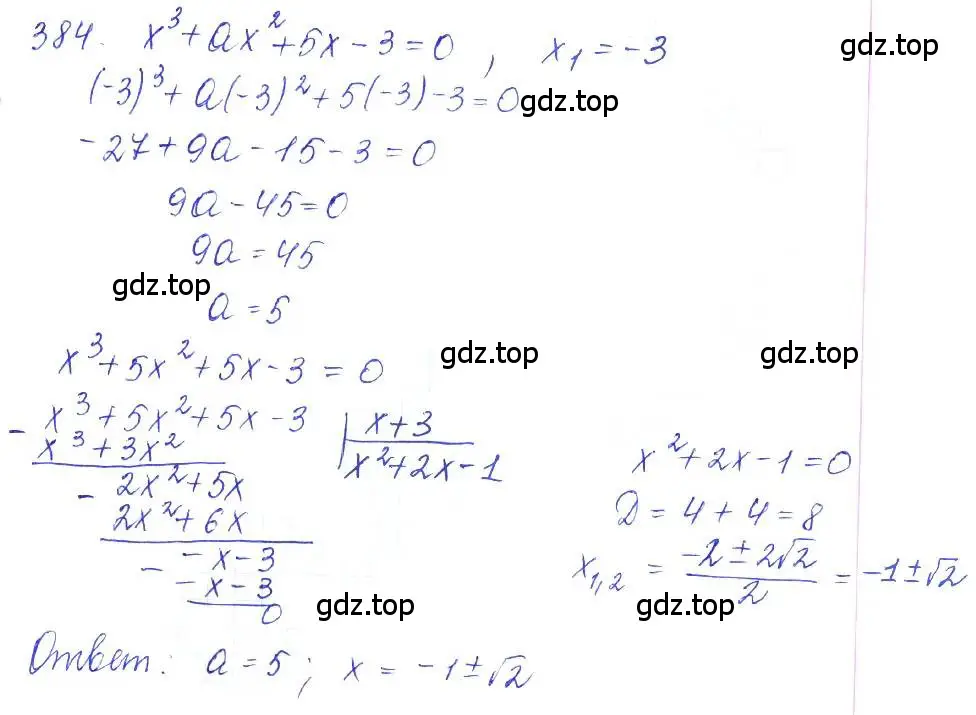 384. x³ + ax² + 5x - 3 = 0, x₁ = -3
gdz.top
(-3)³ + a(-3)² + 5(-3) - 3 = 0
gdz.top
-27 + 9a - 15 - 3 = 0
9a - 45 = 0
9a = 45
gdz.top
a = 5
x³ + 5x² + 5x - 3 = 0
gdz.top
gdz.top
- x³ + 5x² + 5x - 3 | x + 3
x³ + 3x² | x² + 2x - 1
- 2x² + 5x
2x² + 6x
- -x - 3
-x - 3
0
x² + 2x - 1 = 0
D = 4 + 4 = 8
x₁,₂ = (-2 ± 2√2)/2 = -1 ± √2
gdz.top
gdz.top
Ответ: a = 5; x = -1 ± √2